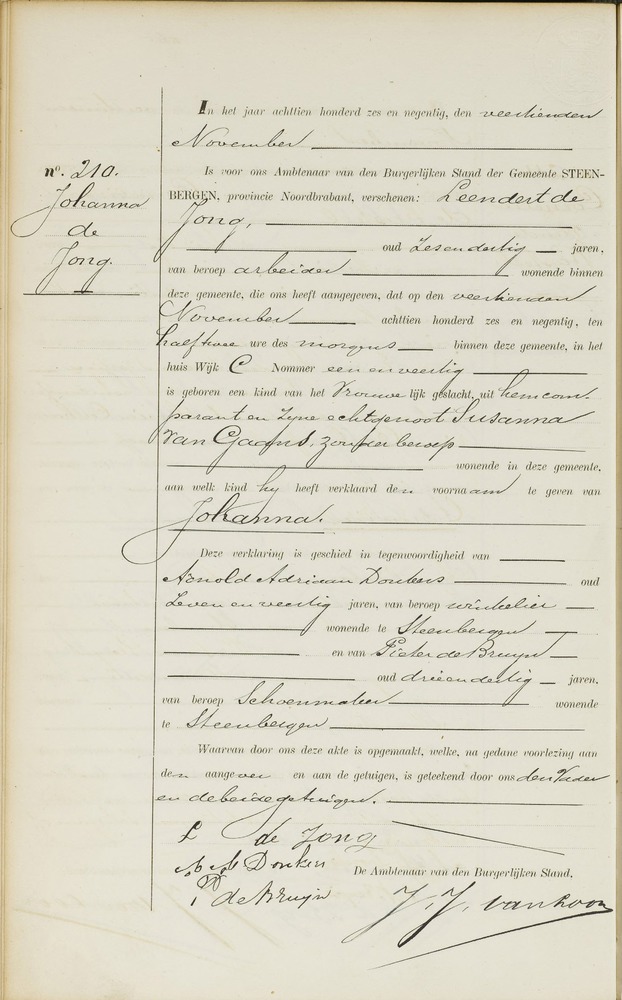 In het jaar achttien honderd zes en negentig, den veertienden
November
nº. 210.
Johanna
de
Jong.
Is voor ons Ambtenaar van den Burgerlijken Stand der Gemeente STEEN-
BERGEN, provincie Noordbrabant, verschenen: Leendert de
Jong,
oud Zesendertig jaren,
van beroep arbeider wonende binnen
deze gemeente, die ons heeft aangegeven, dat op den veertienden
November achttien honderd zes en negentig, ten
half twee ure des morgens binnen deze gemeente, in het
huis Wijk C Nommer een en veertig
is geboren een kind van het Vrouwelijk geslacht, uit hem com-
parant en Zyne echtgenoot Susanna
Van Gaans, zonder beroep
wonende in deze gemeente,
aan welk kind hy heeft verklaard den voornaam te geven van
Johanna.
Deze verklaring is geschied in tegenwoordigheid van
Arnold Adriaan Donkers oud
Zeven en veertig jaren, van beroep winkelier
wonende te Steenbergen
en van Pieter de Bruyn
oud drieendertig jaren,
van beroep Schoenmaker wonende
te Steenbergen
Waarvan door ons deze akte is opgemaakt, welke, na gedane voorlezing aan
den aangever en aan de getuigen, is geteekend door ons den Vader
en de beide getuigen.
L de Jong
A A Donkers
P de Bruijn
De Ambtenaar van den Burgerlijken Stand,
J. J. van Loon